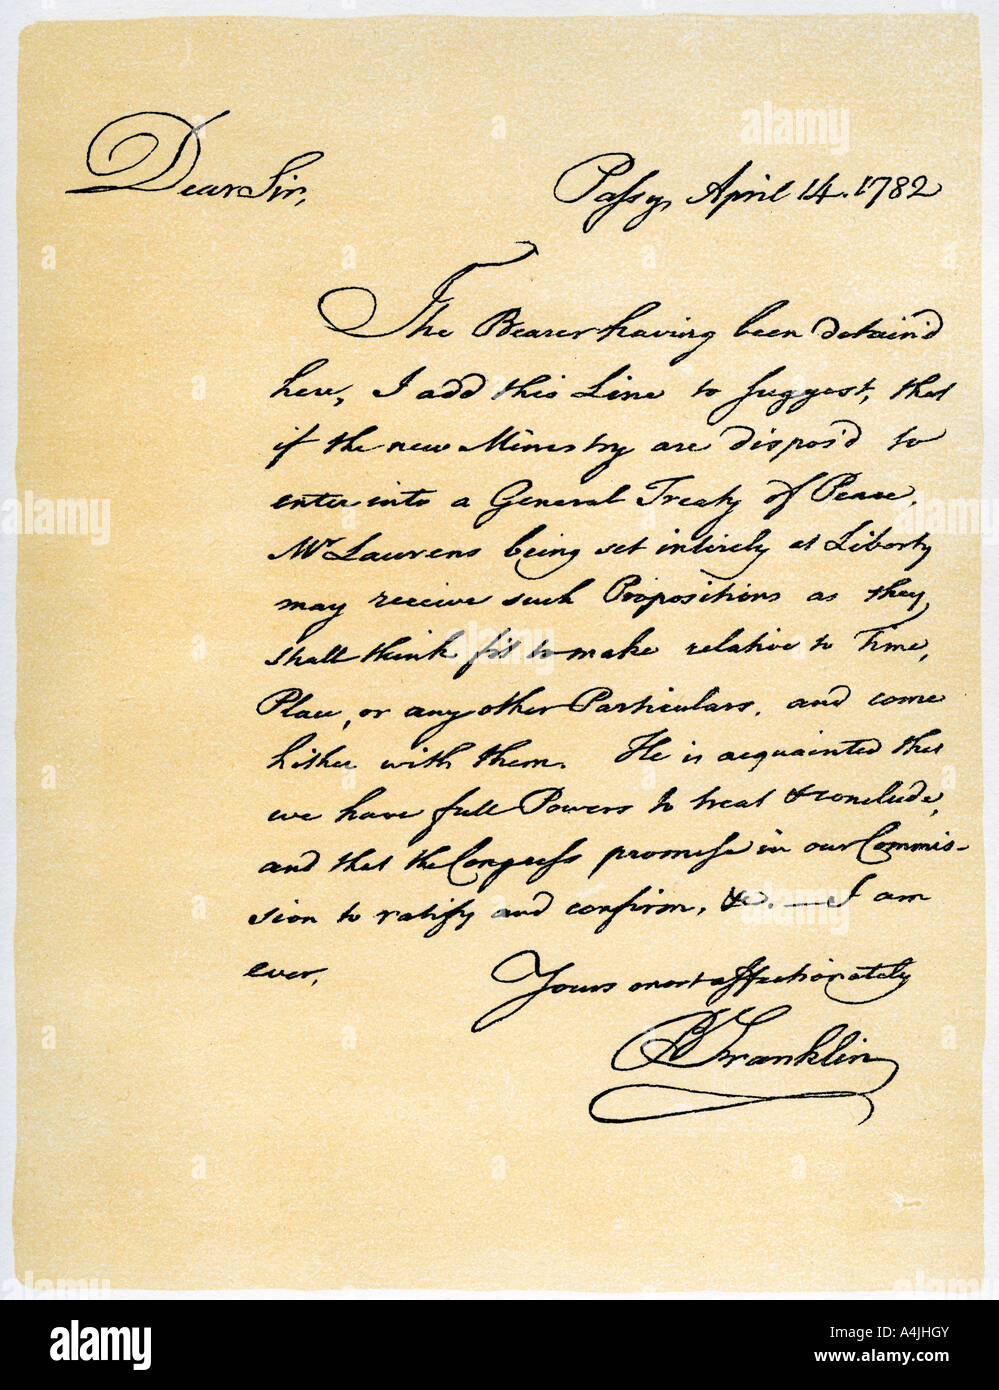 Dear Sir,
Passy, April 14. 1782
The Bearer having been detain'd
here, I add this Line to suggest, that
if the new Ministry are dispos'd to
enter into a General Treaty of Peace,
Mr Laurens being set intirely at Liberty
may receive such Propositions as they
shall think fit to make relative to Time,
Place, or any other Particulars, and come
hither with them. He is acquainted that
we have full Powers to treat & conclude,
and that the Congress promise in our Commis-
sion to ratify and confirm, &c. — I am
ever,
Yours most affectionately
B Franklin
alamy
a
alamy
Image ID: A4JHGY
www.alamy.com